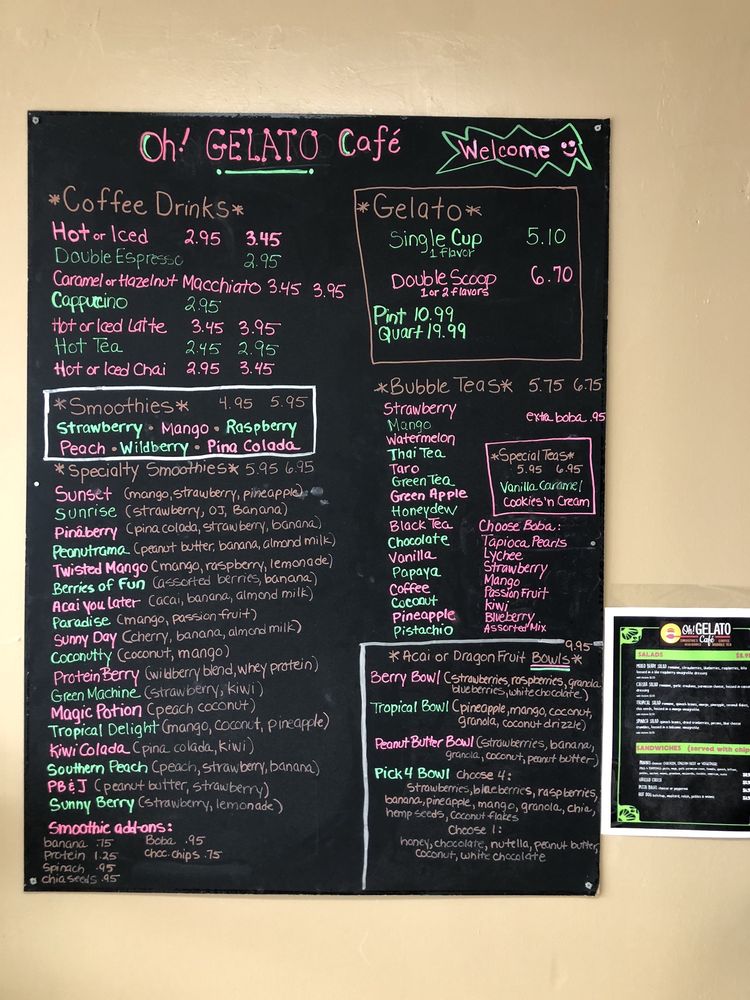 Oh! GELATO Café
Welcome
*Coffee Drinks*
Hot or Iced 2.95 3.45
Double Espresso 2.95
Caramel or Hazelnut Macchiato 3.45 3.95
Cappucino 2.95
Hot or Iced Latte 3.45 3.95
Hot Tea 2.45 2.95
Hot or Iced Chai 2.95 3.45
*Smoothies* 4.95 5.95
Strawberry • Mango • Raspberry
Peach • Wildberry • Pina Colada
*Specialty Smoothies* 5.95 6.95
Sunset (mango, strawberry, pineapple)
Sunrise (strawberry, OJ, Banana)
Pinaberry (pina colada, strawberry, banana)
Peanutrama (peanut butter, banana, almond milk)
Twisted Mango (mango, raspberry, lemonade)
Berries of Fun (assorted berries, banana)
Acai you Later (acai, banana, almond milk)
Paradise (mango, passion fruit)
Sunny Day (cherry, banana, almond milk)
Coconutty (coconut, mango)
Protein Berry (wildberry blend, whey protein)
Green Machine (strawberry, kiwi)
Magic Potion (peach coconut)
Tropical Delight (mango, coconut, pineapple)
Kiwi Colada (pina colada, kiwi)
Southern Peach (peach, strawberry, banana)
PB&J (peanut butter, strawberry)
Sunny Berry (strawberry, lemonade)
Smoothie add-ons:
banana .75 Boba .95
Protein 1.25 choc chips .75
Spinach .95
chia seeds .95
*Gelato*
Single Cup 5.10
1 flavor
Double Scoop 6.70
1 or 2 flavors
Pint 10.99
Quart 19.99
*Bubble Teas* 5.75 6.75
extra boba .95
Strawberry
Mango
Watermelon
Thai Tea
Taro
Green Tea
Green Apple
Honeydew
Black Tea
Chocolate
Vanilla
Papaya
Coffee
Coconut
Pineapple
Pistachio
*Special Teas*
5.95 6.95
Vanilla Caramel
Cookies 'n Cream
Choose Boba:
Tapioca Pearls
Lychee
Strawberry
Mango
Passion Fruit
Kiwi
Blueberry
Assorted Mix
9.95
*Acai or Dragon Fruit Bowls*
Berry Bowl (strawberries, raspberries, granola
blueberries, white chocolate)
Tropical Bowl (pineapple, mango, coconut,
granola, coconut drizzle)
Peanut Butter Bowl (strawberries, banana,
granola, coconut, peanut butter)
Pick 4 Bowl choose 4:
strawberries, blueberries, raspberries,
banana, pineapple, mango, granola, chia,
hemp seeds, coconut flakes
Choose 1:
honey, chocolate, nutella, peanut butter,
coconut, white chocolate
Oh! GELATO
Café
SALADS
SANDWICHES (served with chip